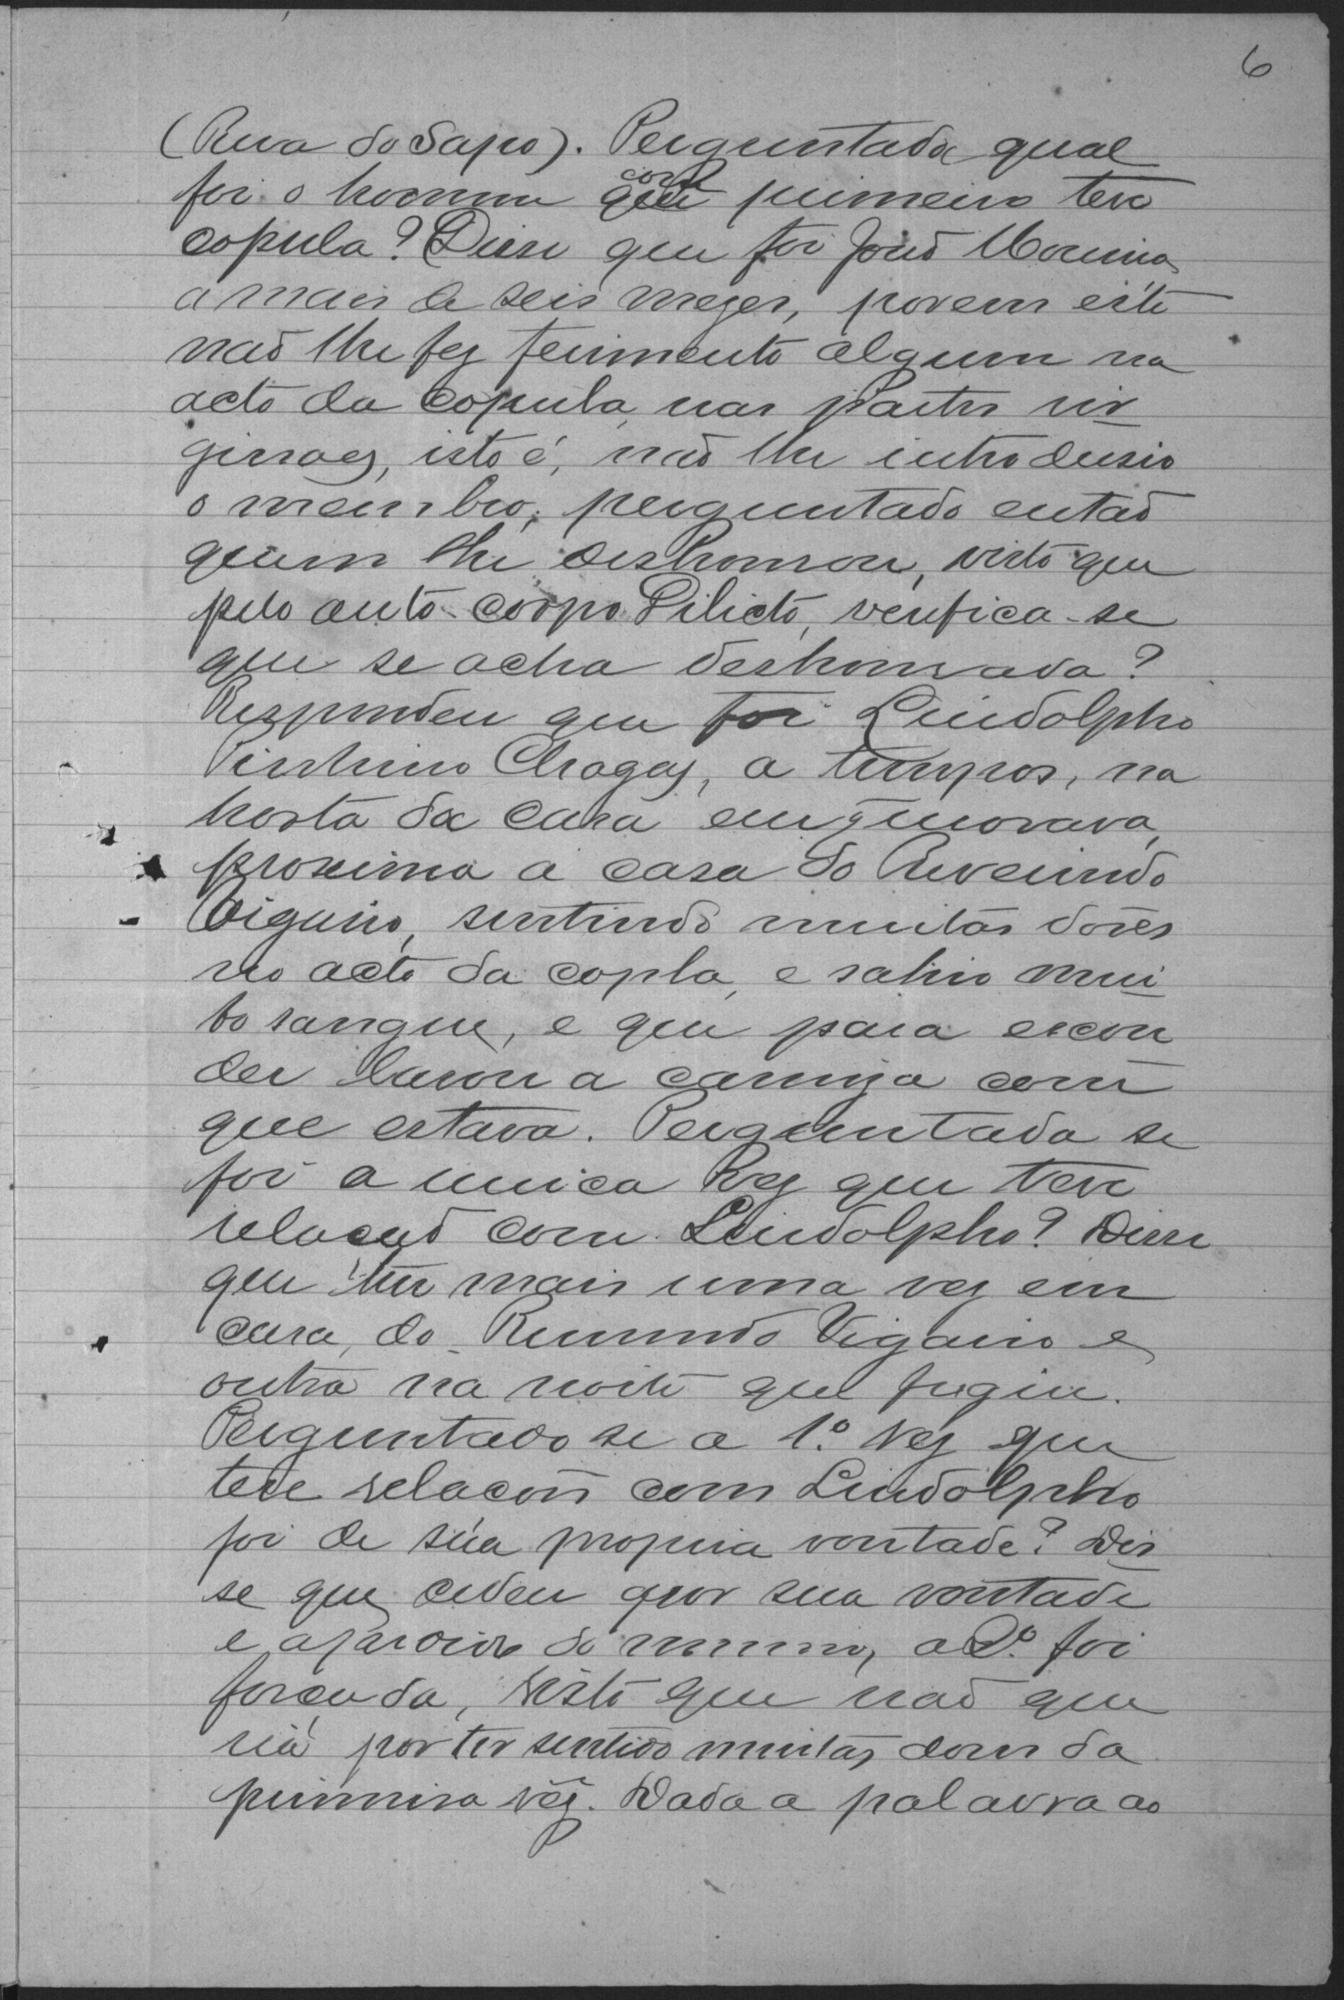 6
(Rua do Sapo). Perguntada qual
foi o homem com que primeiro teve
copula? Disse que foi João Moreira
a mais de seis mezes, porem este
não lhe fez ferimento algum na
acto da copula, nas partes vir
ginaes, isto é, não lhe introdusio
o membro; perguntado então
quem lhe deshonrou, visto que
pelo auto corpo Dilicto, verifica-se
que se acha deshonrada?
Respondeu que foi Lindolpho
Pinheiro Chagas, a tempos, na
horta da casa em q morava,
proxima a casa do Reverendo
Vigario, sentindo muitas dores
no acto da copla, e sahio mui
to sangue, e que para escon
der lavou a camiza com
que estava. Perguntada se
foi a unica vez que teve
relação com Lindolpho? Disse
que teve mais uma vez em
casa, do Reverendo Vigario e
outra na noite que fugiu.
Perguntado se a 1.º vez que
teve relacoñ com Lindolpho
foi de súa propria vontade? Dis
se que cedeu por sua vontade
e a pedido do mesmo, a 2.º foi
forçada, visto que não que
ria por ter sentido muitas dores da
primeira vez. Dada a palavra ao